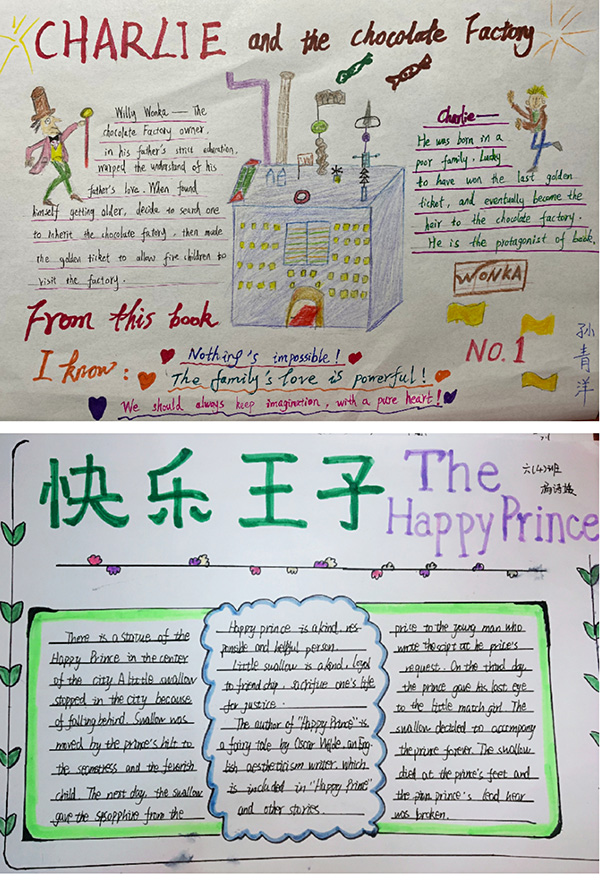 CHARLIE and the chocolate Factory
Willy Wonka — The
chocolate Factory owner,
in his father's strict education,
warped the understand of his
father's live. When found
himself getting older, decide to search one
to inherit the chocolate fatory, then made
the golden ticket to allow five children to
visit the factory.
Charlie —
He was born in a
poor family. Lucky
to have won the last golden
ticket, and eventually become the
heir to the chocolate factory.
He is the protagonist of book.
WONKA
From this book
I know:
Nothing's impossible!
The family's love is powerful!
We should always keep imagination, with a pure heart!
NO.1
孙青洋
快乐王子 The
Happy Prince
六(4)班
There is a statue of the
Happy Prince in the center
of the city. A little swallow
stopped in the city because
of falling behind. Swallow was
moved by the prince's hilt to
the seamstress and the feverish
child. The next day, the swallow
gave the sapphire from the
Happy prince is a kind, res-
ponsible and helpful person.
Little swallow is a kind, loyal
to friendship, sacrifice one's life
for justice.
The author of "Happy Prince" is
a fairy tale by Oscar Wilde, an Eng-
lish aestheticism writer, which
is included in "Happy Prince"
and other stories.
price to the young man who
wrote the script at he price's
request. On the third day,
the prince gave his last eye
to the little match girl. The
swallow decided to accompany
the prince forever. The swallow
died at the prince's feet and
the prince's lead hear
was broken.